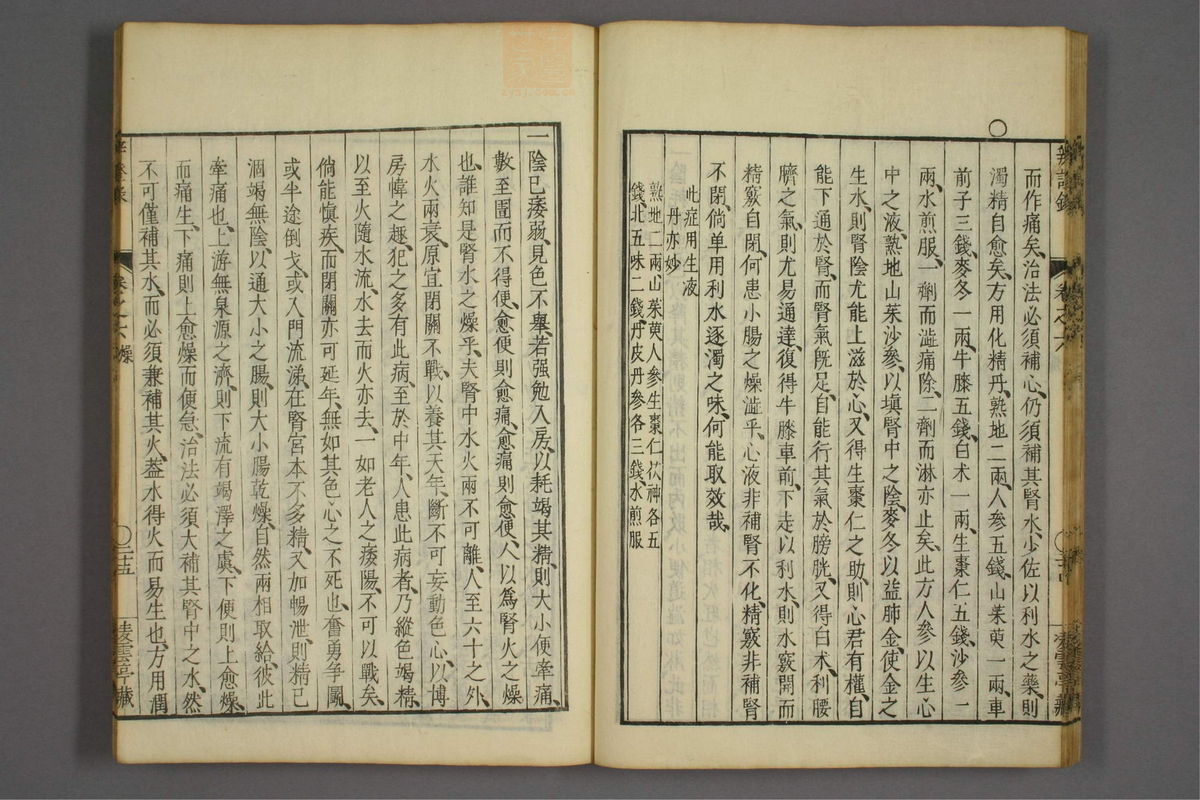 辨證錄 卷之六
而作痛矣、治法必須補心、仍須補其腎水、少佐以利水之藥、則
濁精自愈矣、方用化精丹、熟地二兩、人參五錢、山茱萸一兩、車
前子三錢、麥冬一兩、牛膝五錢、白朮一兩、生棗仁五錢、沙參一
兩、水煎服、一劑而澁痛除、二劑而淋亦止矣、此方人參以生心
中之液、熟地山茱沙參、以塡腎中之陰、麥冬以益肺金、使金之
生水、則腎陰尤能上滋於心、又得生棗仁之助、則心君有權、自
能下通於腎、而腎氣旣足、自能行其氣於膀胱、又得白朮、利腰
臍之氣、則尤易通達、復得牛膝車前、下走以利水、則水竅開而
精竅自閉、何患小腸之燥澁乎、心液非補腎不化、精竅非補腎
不閉、倘单用利水逐濁之味、何能取效哉、
此症用生液
丹亦妙
熟地二兩山茱萸人參生棗仁茯神各五
錢北五味二錢丹皮丹參各三錢水煎服
凌雲亭藏
一陰已痿弱、見色不舉、若强勉入房、以耗竭其精、則大小便牽痛、
數至圊而不得便、愈便則愈痛、愈痛則愈便、人以爲腎火之燥
也、誰知是腎水之燥乎、夫腎中水火兩不可離、人至六十之外、
水火兩衰、原宜閉關不戰、以養其天年、斷不可妄動色心、以博
房幃之趣、犯之多有此病、至於中年、人患此病者、乃縱色竭精、
以至火隨水流、水去而火亦去、一如老人之痿陽、不可以戰矣、
倘能愼疾、而閉關亦可延年、無如其色心之不死也、奮勇爭鬭、
或半途倒戈、或入門流涕、在腎宮本不多精、又加暢泄、則精已
涸竭無陰、以通大小之腸、則大小腸乾燥、自然兩相取給、彼此
牽痛也、上游無泉源之濟、則下流有竭澤之虞、下便則上愈燥、
而痛生、下痛則上愈燥而便急、治法必須大補其腎中之水、然
不可僅補其水、而必須兼補其火、葢水得火而易生也、方用潤
卷之六 燥
二十五
凌雲亭藏